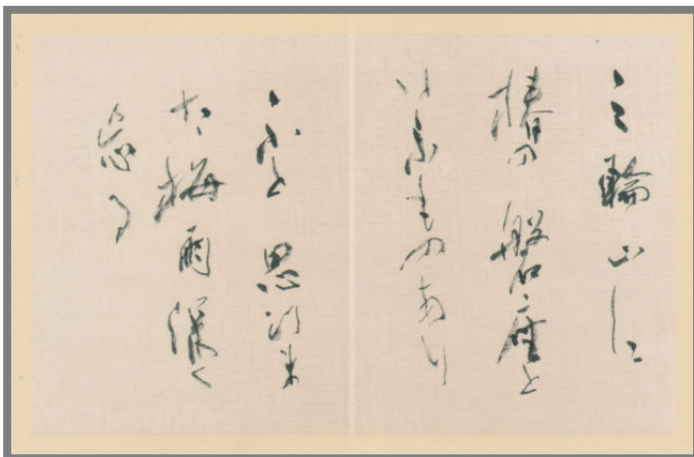 三輪山に
椿の磐座と
いふものあり
ふと思ひま
た梅雨深く
忘る